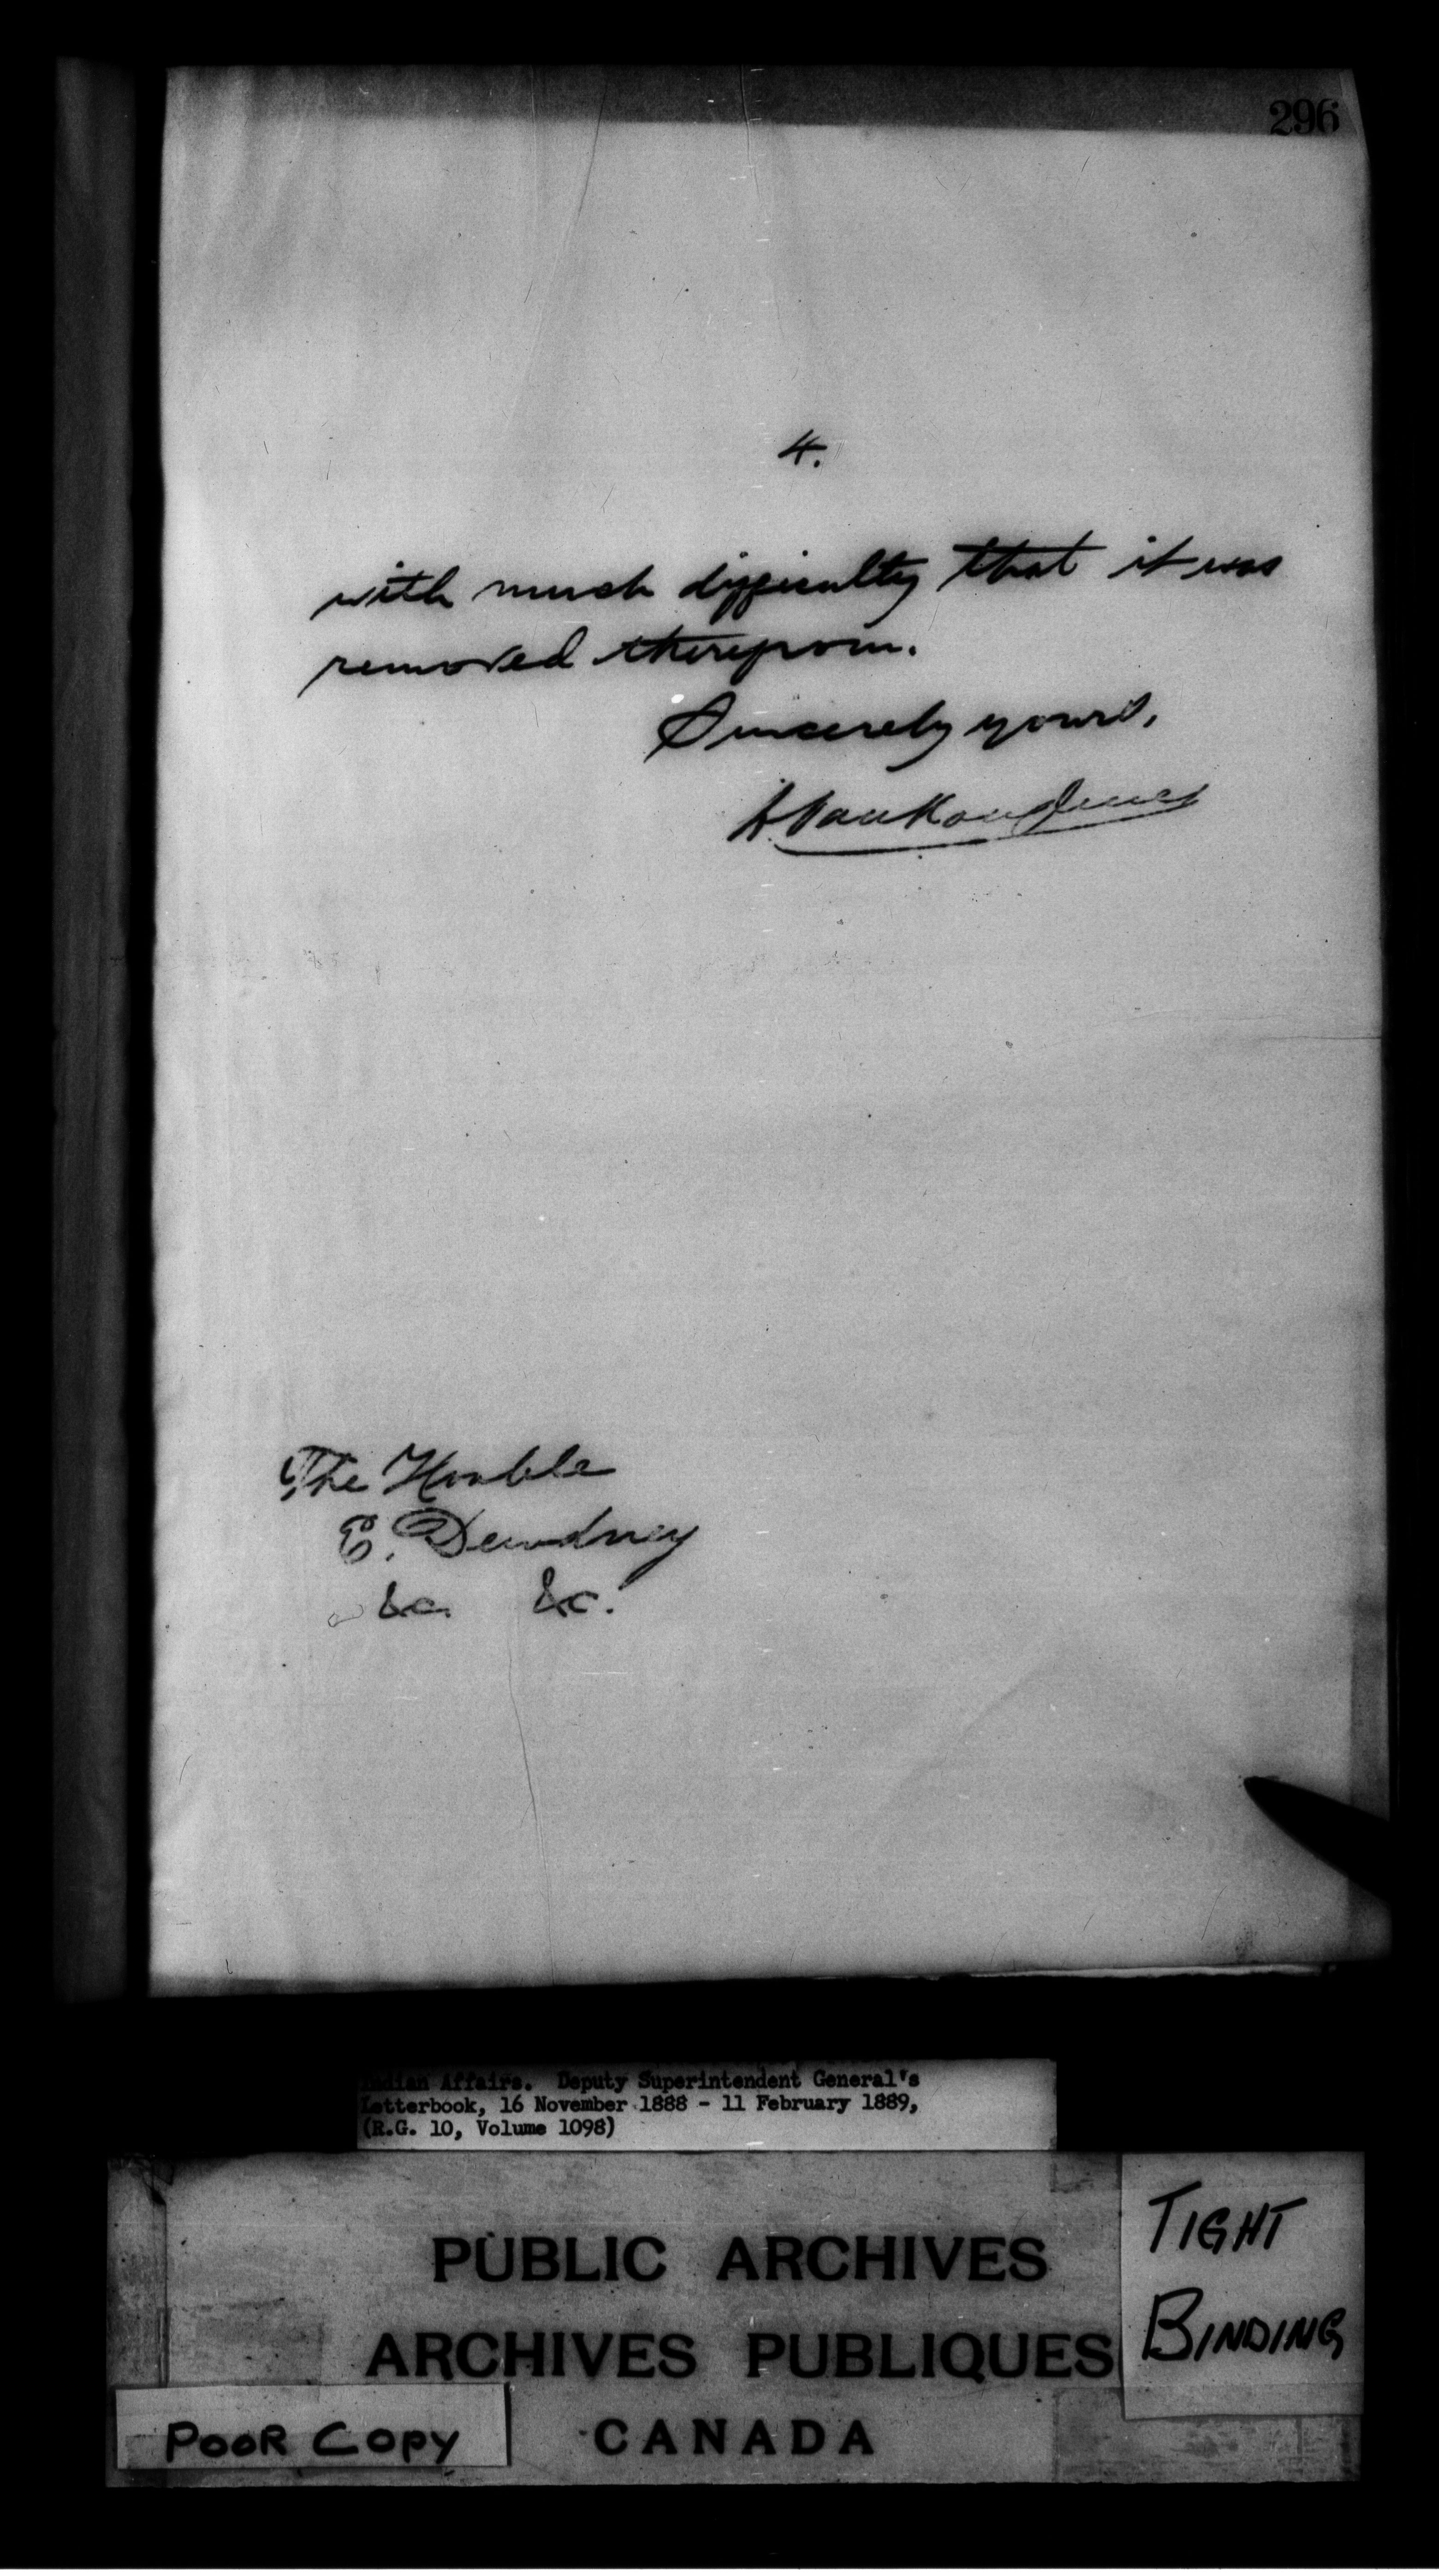 296
4.
with much difficulty that it was
removed therefrom.
Sincerely yours,
L. VanKoughnet
The Honble
E. Dewdney
&c. &c.
Indian Affairs. Deputy Superintendent General's
Letterbook, 16 November 1888 - 11 February 1889,
(R.G. 10, Volume 1098)
PUBLIC ARCHIVES
ARCHIVES PUBLIQUES
CANADA
TIGHT
BINDING
POOR COPY